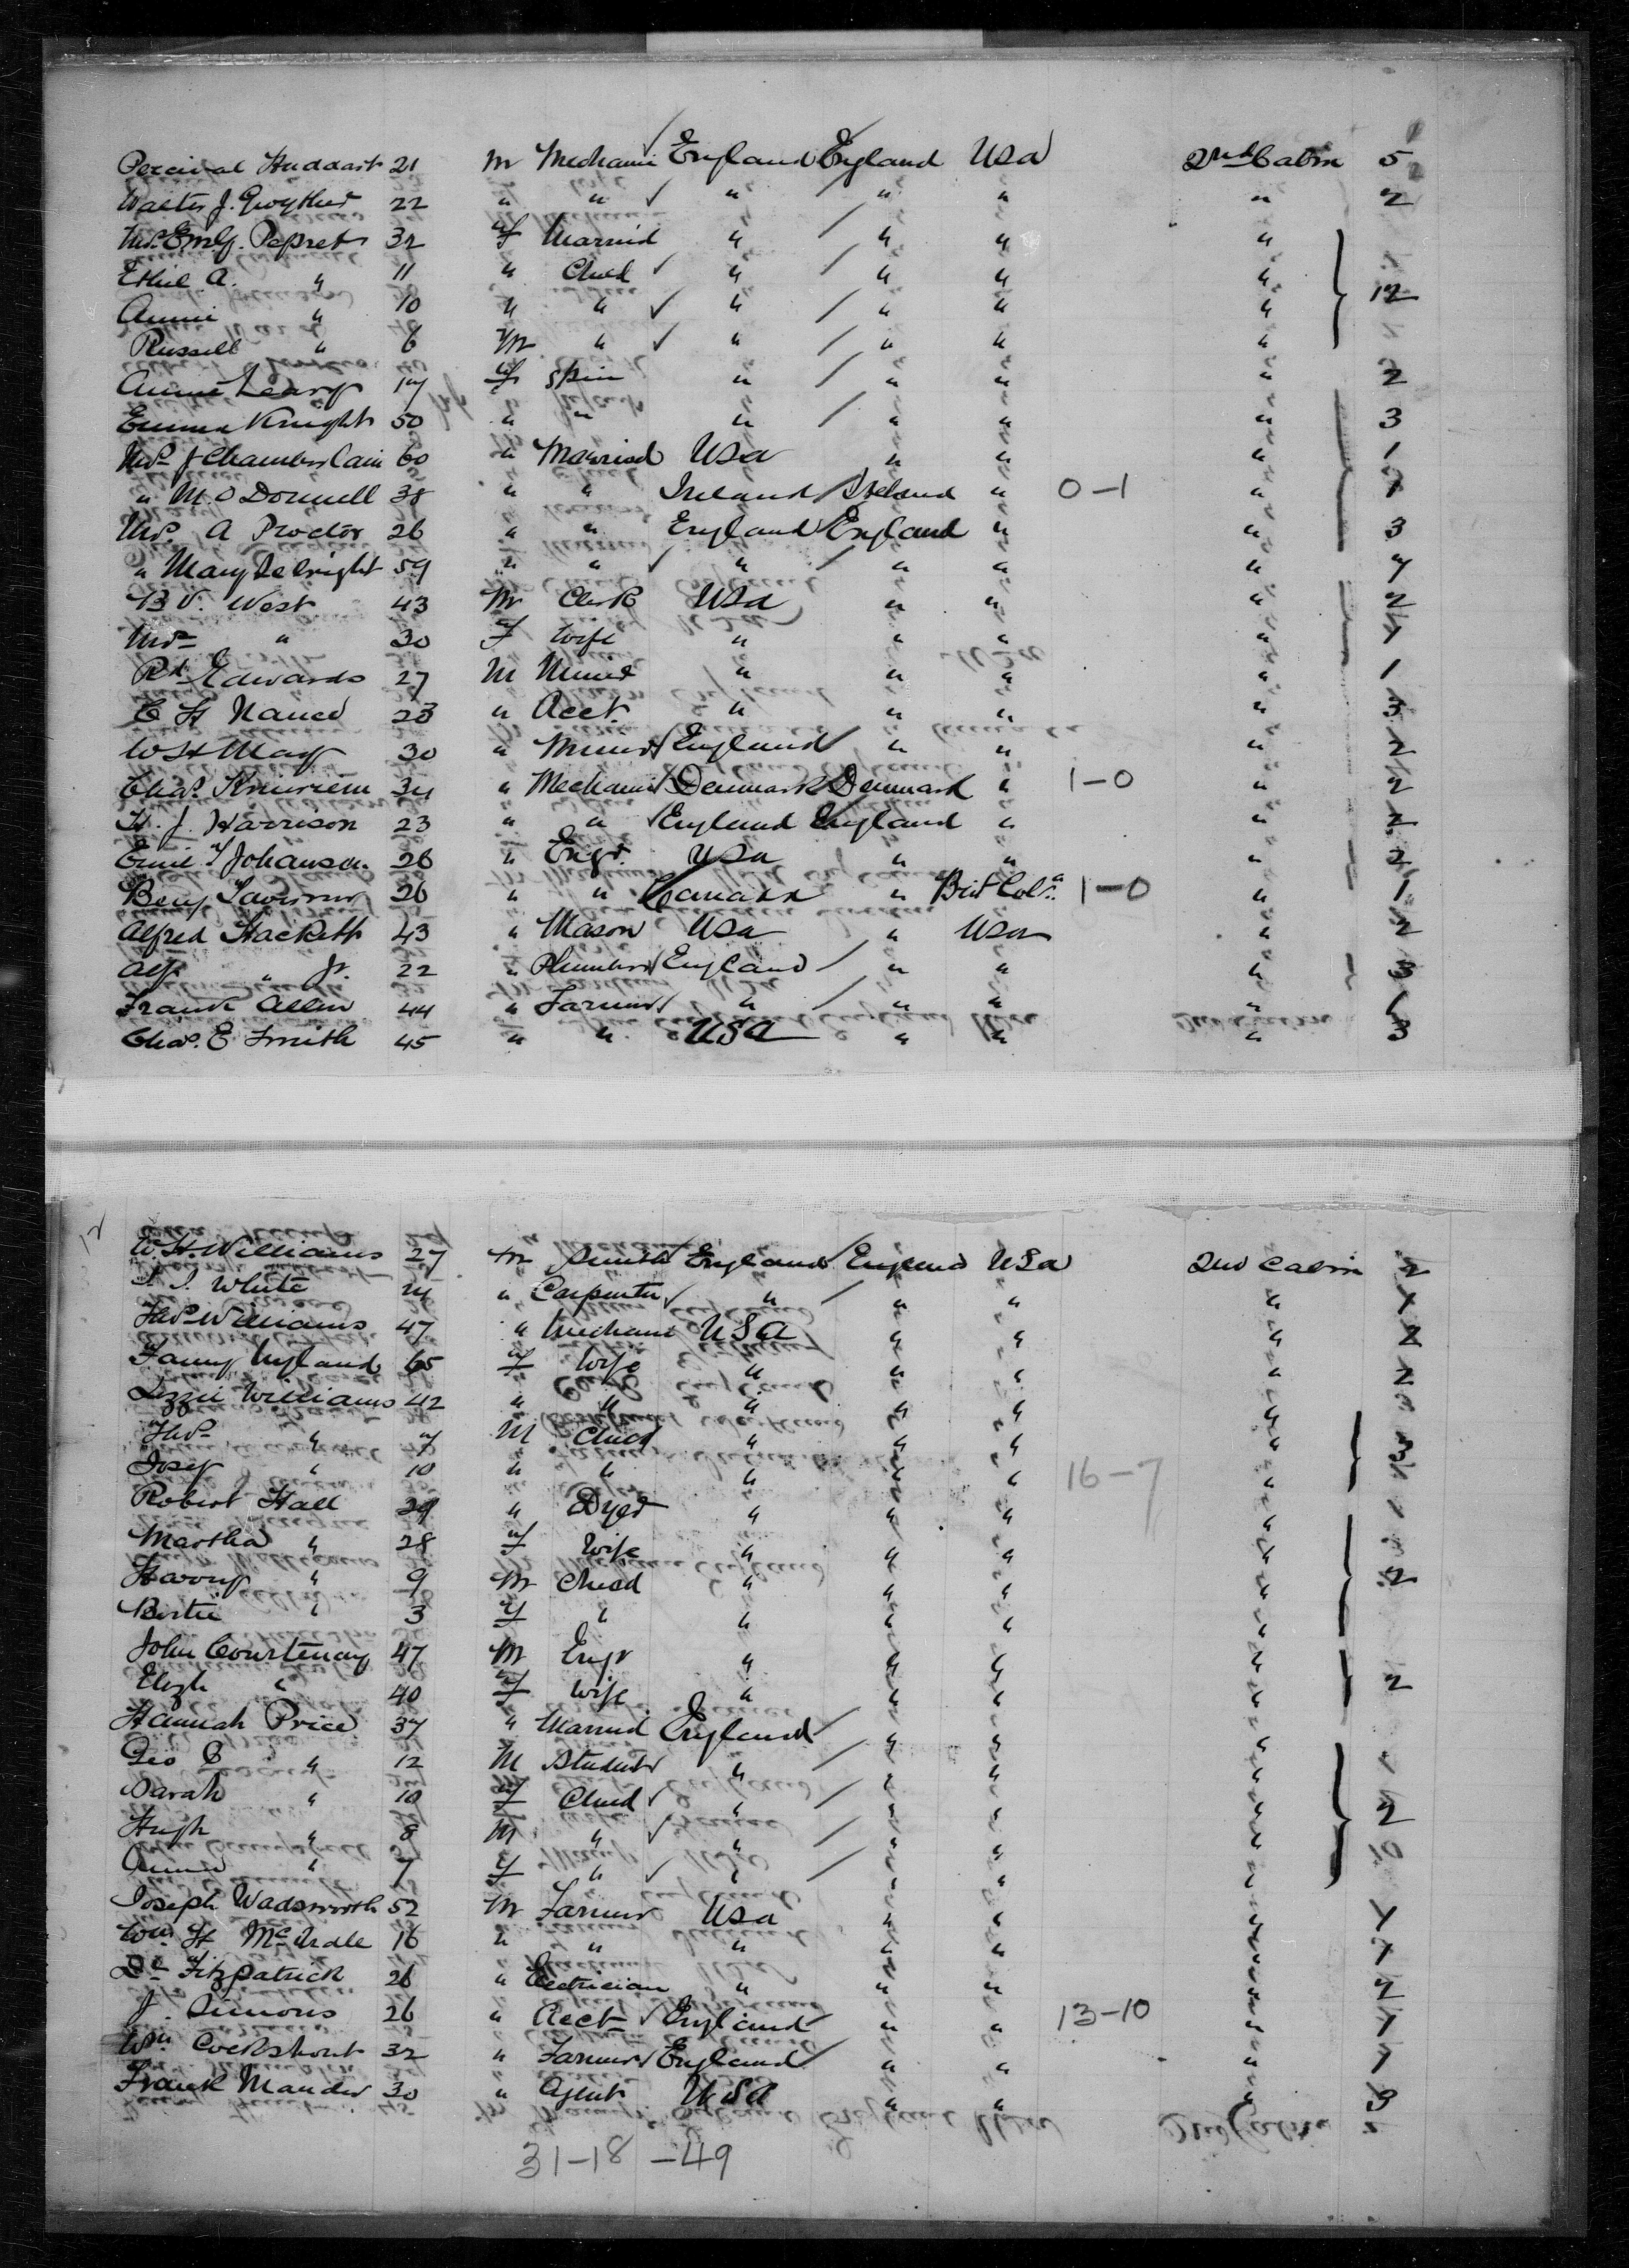 Percival Huddart 21 M Mechanic England England USA 2nd Cabin 5
Walter J. Gwyther 22 " " " " " " 2
Mrs Emly. 32 f Married " " " "
Ethel A. " 11 " Child " " " "
Annie " 10 " " " " " " 12
Russell " 6 M " " " " "
Annie Leary 17 f Spin " " " " 2
Emma Knight 50 " " " " " " 3
Mrs J Chamberlain 60 " Married USA " " " 1
" M O Donnell 38 " " Ireland Ireland " 0-1 " 1
Mrs. A Proctor 26 " " England England " " 3
" Mary 59 " " " " " "
B V. West 43 M Clerk USA " " " 2
Mrs " 30 f Wife " " " "
Rd Edwards 27 M Miner " " " " 1
C H Nance 23 " Acct. " " " " 3
W H May 30 " Miner England " " " 2
Chas. 34 " Mechanic Denmark Denmark " 1-0 " 2
H. J. Harrison 23 " " England England " " 2
Johansen 26 " Engr. USA " " " 2
Benj 26 " " Canada " Brit Cola. 1-0 " 1
Alfred Hackett 43 " Mason USA " USA " 2
Alf. " Jr. 22 " Plumber England " " " 3
Frank Allen 44 " Farmer " " " " 1
Chas. E Smith 45 " " USA " " " 3
12
W. H. Williams 27 M Smith England England USA 2nd Cabin 2
White 24 " Carpenter " " " " 1
Thos Williams 47 " Mechanic USA " " " 2
Fanny Nyland 65 f Wife " " " " 2
Lizzie Williams 42 " " " " " "
Thos " 7 M Child " " " " 3
Josep " 10 " " " " " 16-7 "
Robert Hall 29 " Dyer " " " "
Martha " 28 f Wife " " " "
Harry " 9 M Child " " " " 2
Bertie " 3 f " " " " "
John Courtenay 47 M Engr " " " "
Elizh " 40 f Wife " " " " 2
Hannah Price 37 " Married England " " "
Geo " 12 M Student " " " "
Sarah " 10 f Child " " " " 2
Hugh " 8 M " " " " "
Annie " 7 f " " " " "
Joseph Wadsworth 52 M Farmer USA " " " 1
Wm H McArdle 16 " " " " " " 1
Dr Fitzpatrick 26 " Electrician " " " " 2
J. Simons 26 " Acct England " " 13-10 " 1
Wm. Cockshout 32 " Farmer England " " " 1
Frank Mander 30 " Agent USA " " " 3
31-18-49